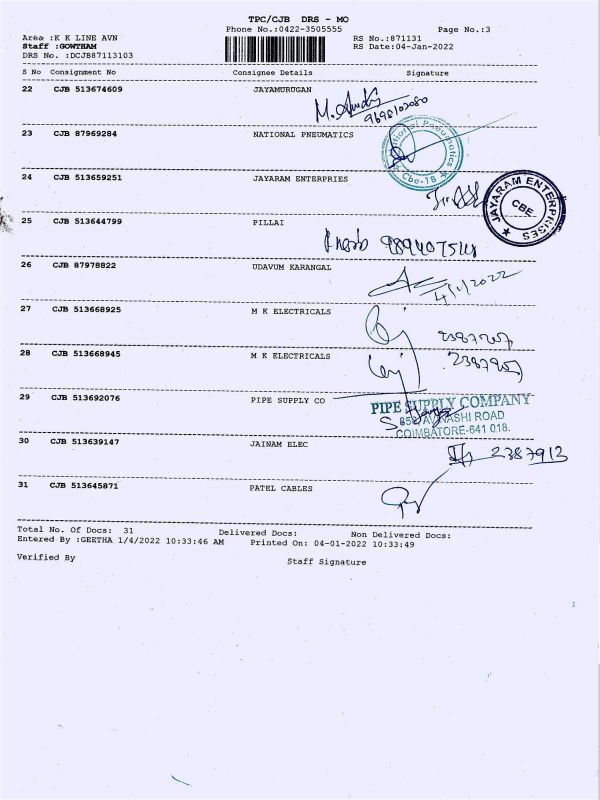 TPC/CJB DRS - MO
Phone No.:0422-3505555 Page No.:3
Area :K K LINE AVN RS No.:871131
Staff :GOWTHAM RS Date:04-Jan-2022
DRS No. :DCJB87113103
S No Consignment No Consignee Details Signature
22 CJB 513674609 JAYAMURUGAN
23 CJB 87969284 NATIONAL PNEUMATICS
National Pneumatics
Cbe-18
24 CJB 513659251 JAYARAM ENTERPRIES
JAYARAM ENTERPRISES
CBE
25 CJB 513644799 PILLAI
26 CJB 87978822 UDAVUM KARANGAL
4/1/2022
27 CJB 513668925 M K ELECTRICALS
2387207
28 CJB 513668945 M K ELECTRICALS
2387207
29 CJB 513692076 PIPE SUPPLY CO
PIPE SUPPLY COMPANY
AVINASHI ROAD
COIMBATORE-641 018.
30 CJB 513639147 JAINAM ELEC
2387912
31 CJB 513645871 PATEL CABLES
Total No. Of Docs: 31 Delivered Docs: Non Delivered Docs:
Entered By :GEETHA 1/4/2022 10:33:46 AM Printed On: 04-01-2022 10:33:49
Verified By Staff Signature